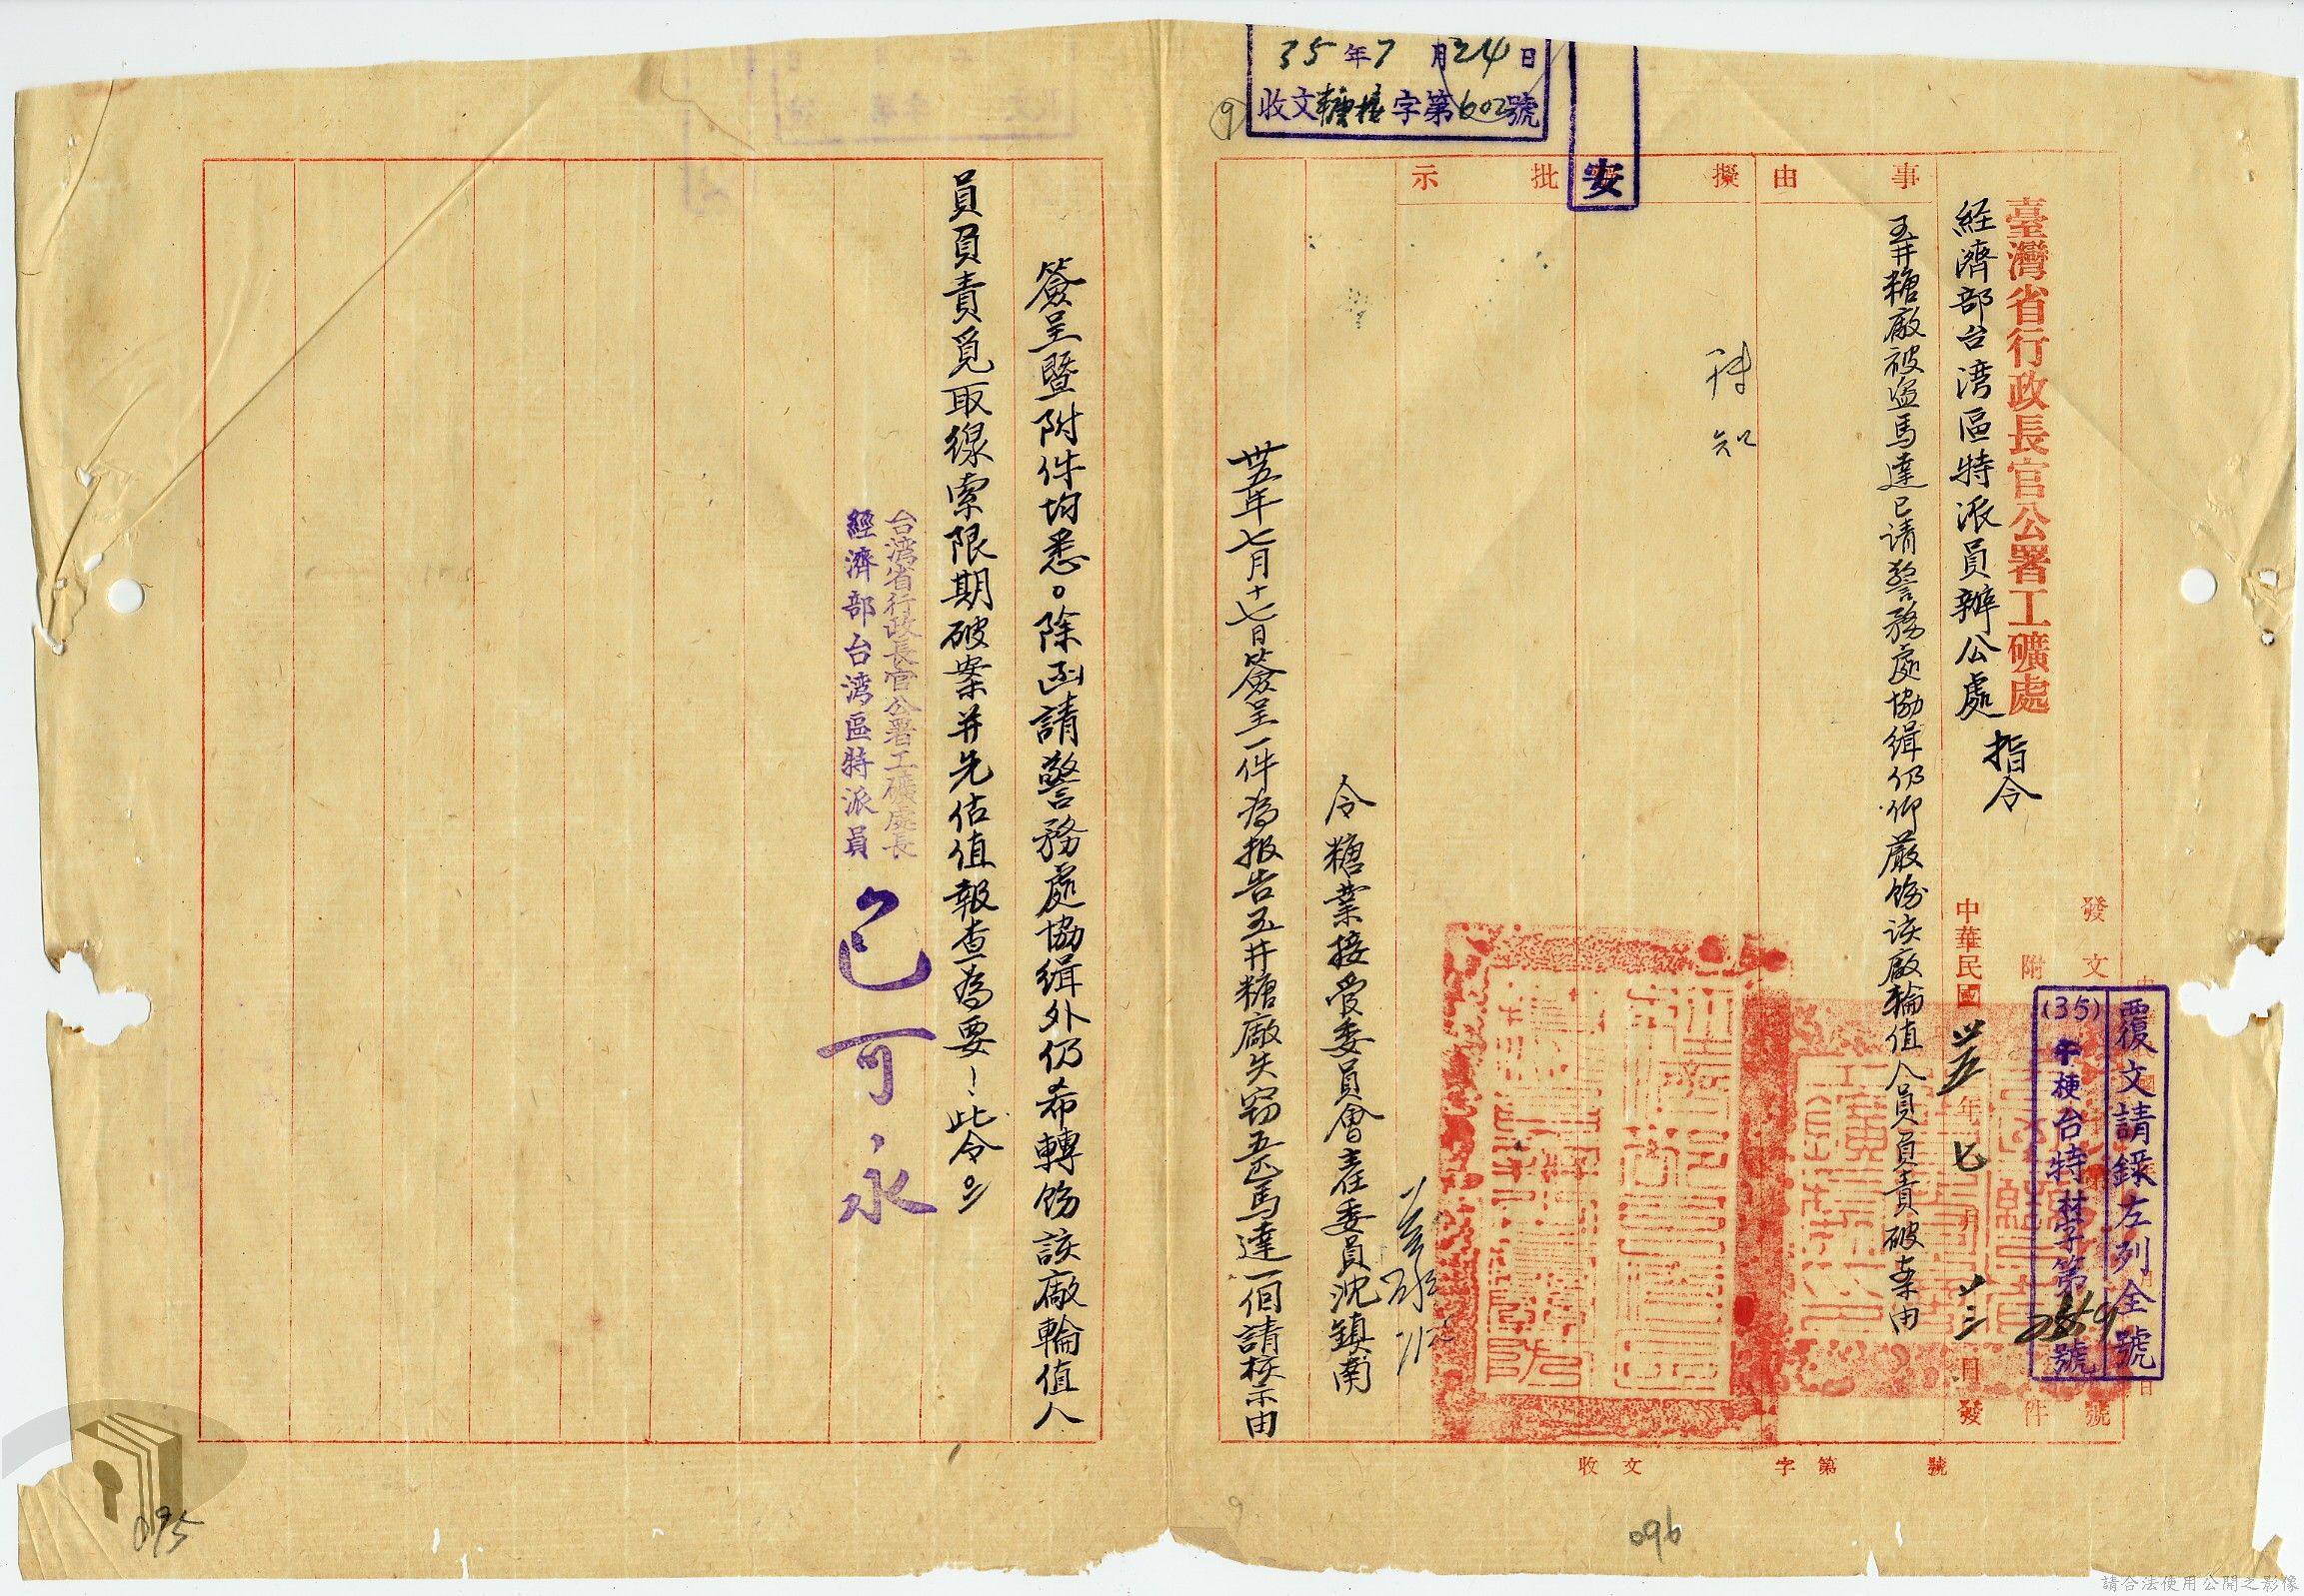 臺灣省行政長官公署工礦處
経濟部台湾區特派員辦公處
指令
事由
玉井糖廠被盜馬達已请警務處協缉仍仰嚴飭该廠輪值人員負責破案由
擬
批
示
安
35年7月24日
收文糖接字第602號
9
發文
號
附
件
中華民國卅五年七月廿三日發
覆文請錄左列全號
(35)午梗台特林字第
號
待知
令糖業接管委員會主任委員沈鎮南
卅五年七月十七日簽呈一件為报告玉井糖廠失窃五匹馬達一個請核示由
收文
字第
號
096
簽呈暨附件均悉。除函請警務處協缉外仍希轉飭該廠輪值人
員負責覓取線索限期破案并先估值報查為要！此令。
台湾省行政長官公署工礦處長
經濟部台湾區特派員
包可永
095
請合法使用公開之影像